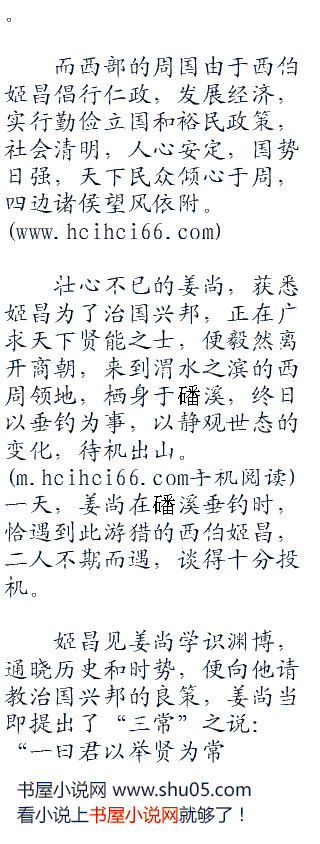 。
而西部的周国由于西伯
姬昌倡行仁政，发展经济，
实行勤俭立国和裕民政策，
社会清明，人心安定，国势
日强，天下民众倾心于周，
四边诸侯望风依附。
(www.hcihci66.com)
壮心不已的姜尚，获悉
姬昌为了治国兴邦，正在广
求天下贤能之士，便毅然离
开商朝，来到渭水之滨的西
周领地，栖身于磻溪，终日
以垂钓为事，以静观世态的
变化，待机出山。
(m.hcihci66.com手机阅读)
一天，姜尚在磻溪垂钓时，
恰遇到此游猎的西伯姬昌，
二人不期而遇，谈得十分投
机。
姬昌见姜尚学识渊博，
通晓历史和时势，便向他请
教治国兴邦的良策，姜尚当
即提出了“三常”之说：
“一曰君以举贤为常
书屋小说网 www.shu05.com
看小说上书屋小说网就够了！